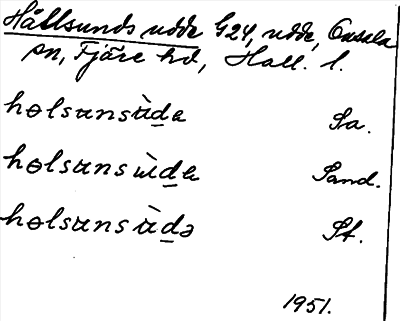 Hållsunds udde G24, udde, Onsala
sn, Fjäre hd, Hall. l.
hɵlsunsùdɐ Sa.
hɵlsunsùdɐ Sand.
hɵlsunsùdə St.
1951.